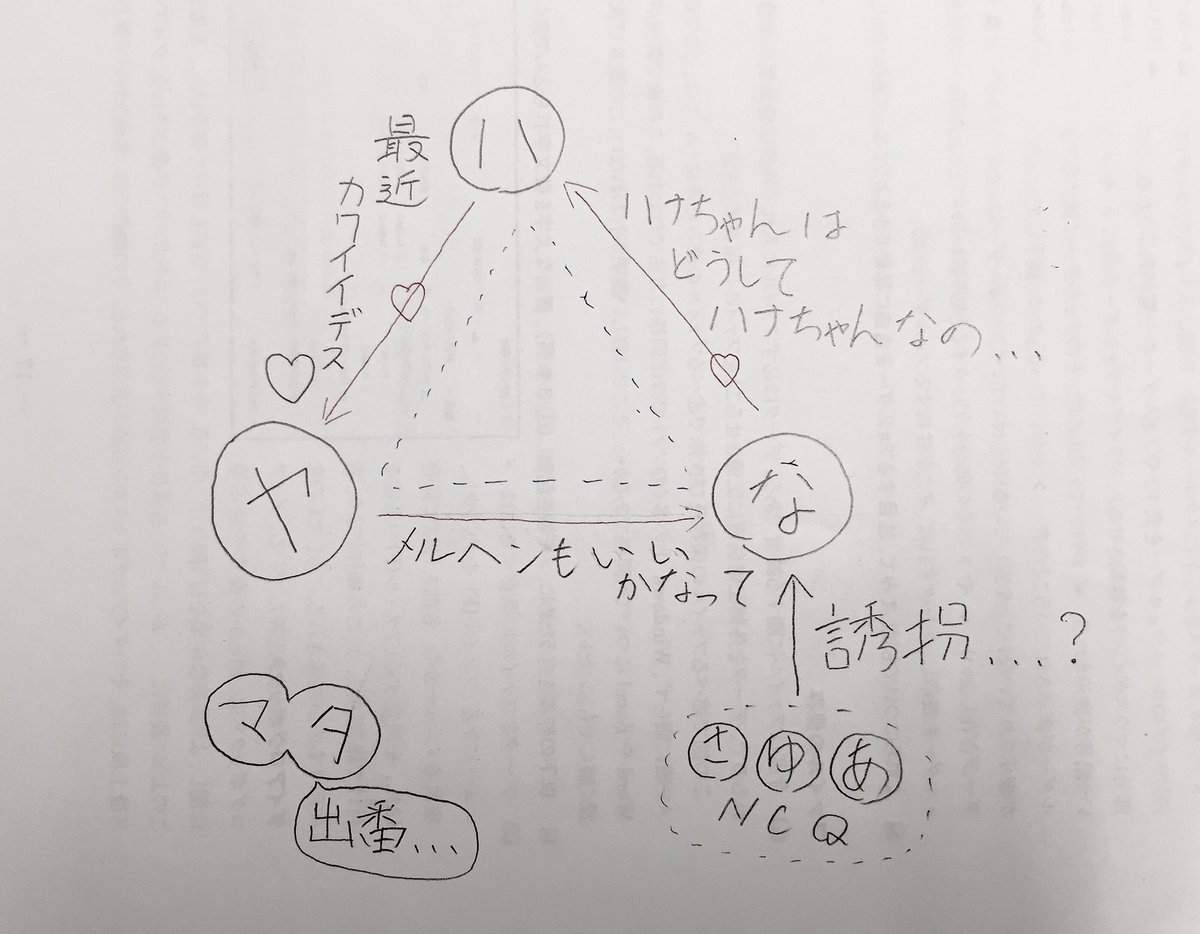 ハ
最近
カワイイデス
ハナちゃんは
どうして
ハナちゃんなの...
ヤ
な
メルヘンもいい
かなって
誘拐...?
マ タ
出番...
さ ゆ あ
NCQ